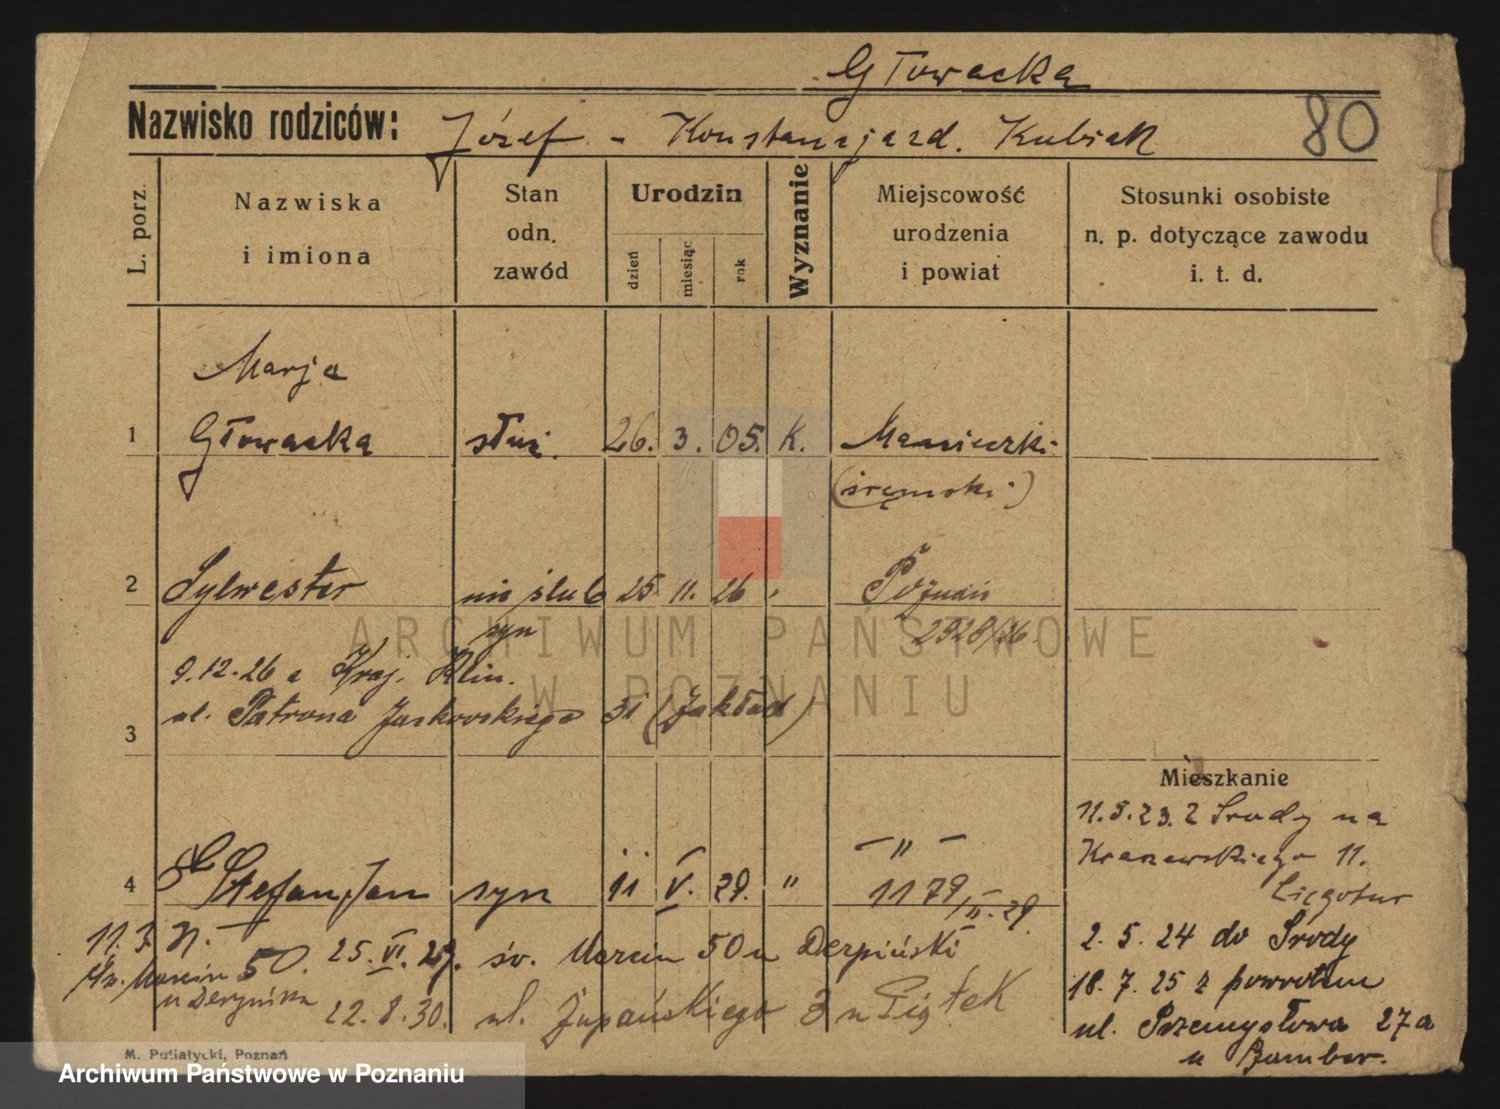 Głowacka
Nazwisko rodziców: Józef - Konstancja zd. Kubiak 80
L. porz. Nazwiska i imiona Stan odn. zawód Urodzin dzień miesiąc rok Wyznanie Miejscowość urodzenia i powiat Stosunki osobiste n. p. dotyczące zawodu i. t. d.
Marja
1 Głowacka służ. 26. 3. 05. K. Manieczki
(śremski)
2 Sylwester nie ślub 25. 11. 26 Poznań
syn 2928/26
9.12.26 Kraj. Klin.
3 ul. Patrona Jackowskiego 31 (Zakład)
Mieszkanie
11.5.23. z Środy na
Kraszewskiego 11.
4 Stefan Jan syn 11 V. 29. " — " —
1179/II.29.
2. 5. 24 do Środy
18. 7. 25 z powrotem
ul. Przemysłowa 27a
u Bamber.
11. 3. 50.
25. VI. 29. św. Marcin 50 u Derpiński
22. 8. 30. ul. Żupańskiego 3 u Piątek
M. Putiatycki, Poznań
ARCHIWUM PAŃSTWOWE
W POZNANIU
Archiwum Państwowe w Poznaniu